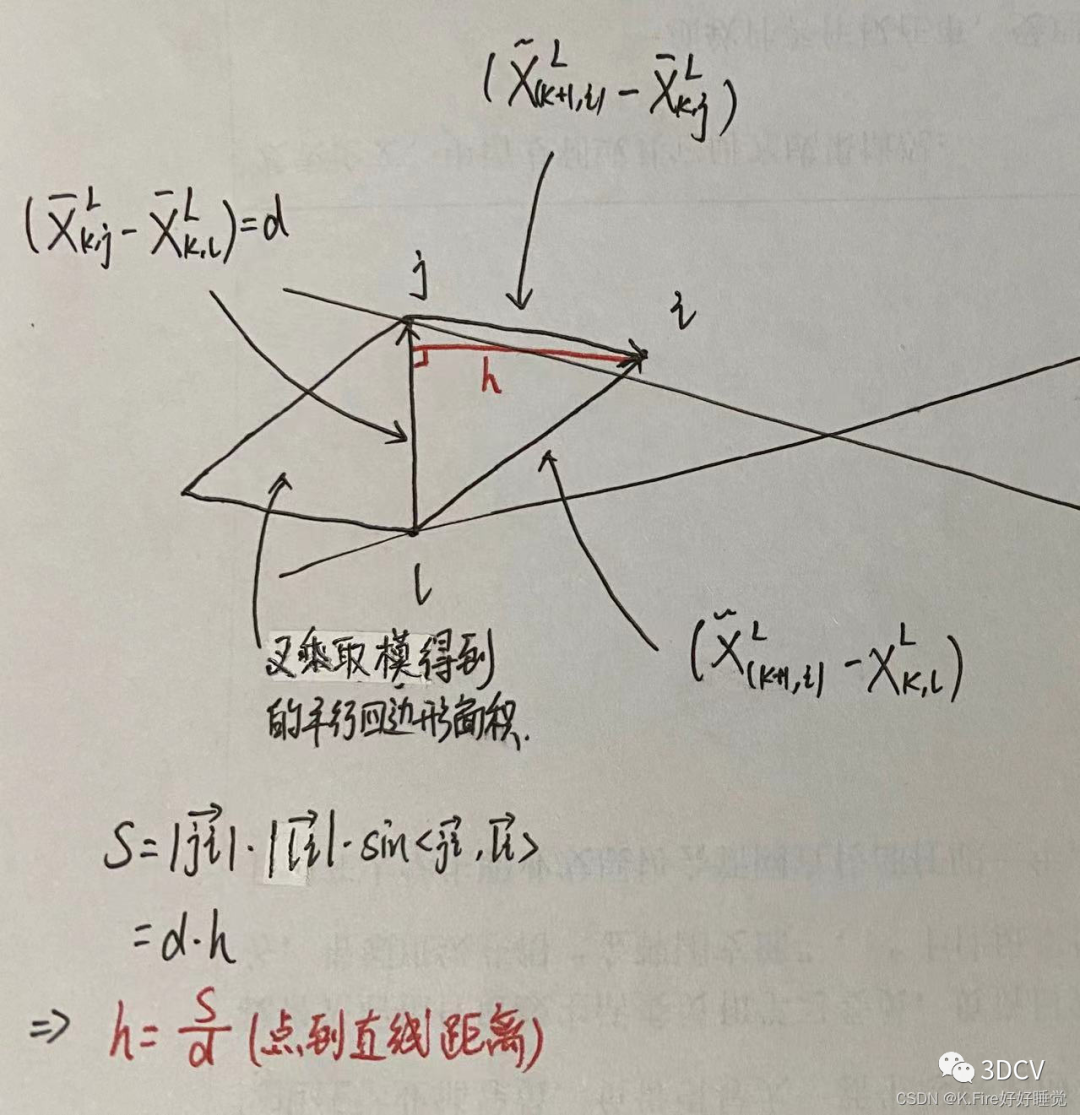 (X̃ᴸ₍ₖ₊₁,ᵢ₎ - X̄ᴸₖ,ⱼ)
(X̄ᴸₖ,ⱼ - X̄ᴸₖ,ₗ)=d
j
i
h
l
叉乘取模得到
的平行四边形面积.
(X̃ᴸ₍ₖ₊₁,ᵢ₎ - Xᴸₖ,ₗ)
S=|ji→|·|li→|·sin<ji→,li→>
=d·h
=> h=S/d (点到直线距离)
3DCV
CSDN @K.Fire好好睡觉